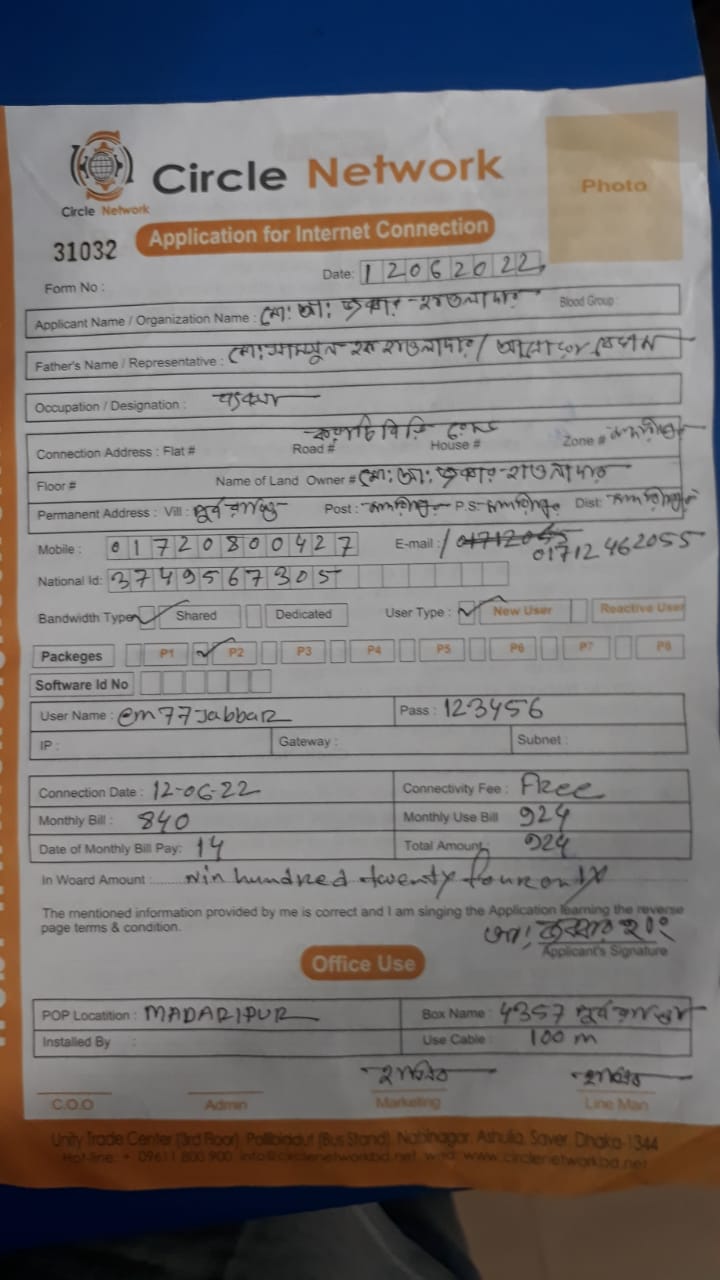 Circle Network
Photo
Circle Network
Application for Internet Connection
31032
Form No :
Date: 12062022
Applicant Name / Organization Name : মো: আ: জব্বার হাওলাদার Blood Group :
Father's Name / Representative : হাওলাদার /
Occupation / Designation :
Connection Address : Flat # Road # House # Zone #
Floor # Name of Land Owner # মো: আ: জব্বার হাওলাদার
Permanent Address : Vill : পূর্ব Post : P.S- Dist:
Mobile : 01720800427 E-mail : / 01712462055
National Id: 3749567305
Bandwidth Type Shared Dedicated User Type : New User Reactive User
Packeges P1 P2 P3 P4 P5 P6 P7 P8
Software Id No
User Name : em77Jabbar Pass : 123456
IP : Gateway : Subnet :
Connection Date : 12-06-22 Connectivity Fee : Free
Monthly Bill : 840 Monthly Use Bill 924
Date of Monthly Bill Pay: 14 Total Amount : 924
In Woard Amount : Nin hundred twenty four only
The mentioned information provided by me is correct and I am singing the Application learning the reverse
page terms & condition.
Applicant's Signature
Office Use
POP Locatition : MADARIPUR Box Name : 4357 পূর্ব
Installed By : Use Cable : 100 m
C.O.O Admin Marketing Line Man
Unity Trade Center (3rd Floor), Pallibiddut (Bus Stand), Nabinagar, Ashulia, Saver, Dhaka-1344
Hot-line: + 09611 800 900, info@circlenetworkbd.net, web: www.circlenetworkbd.net